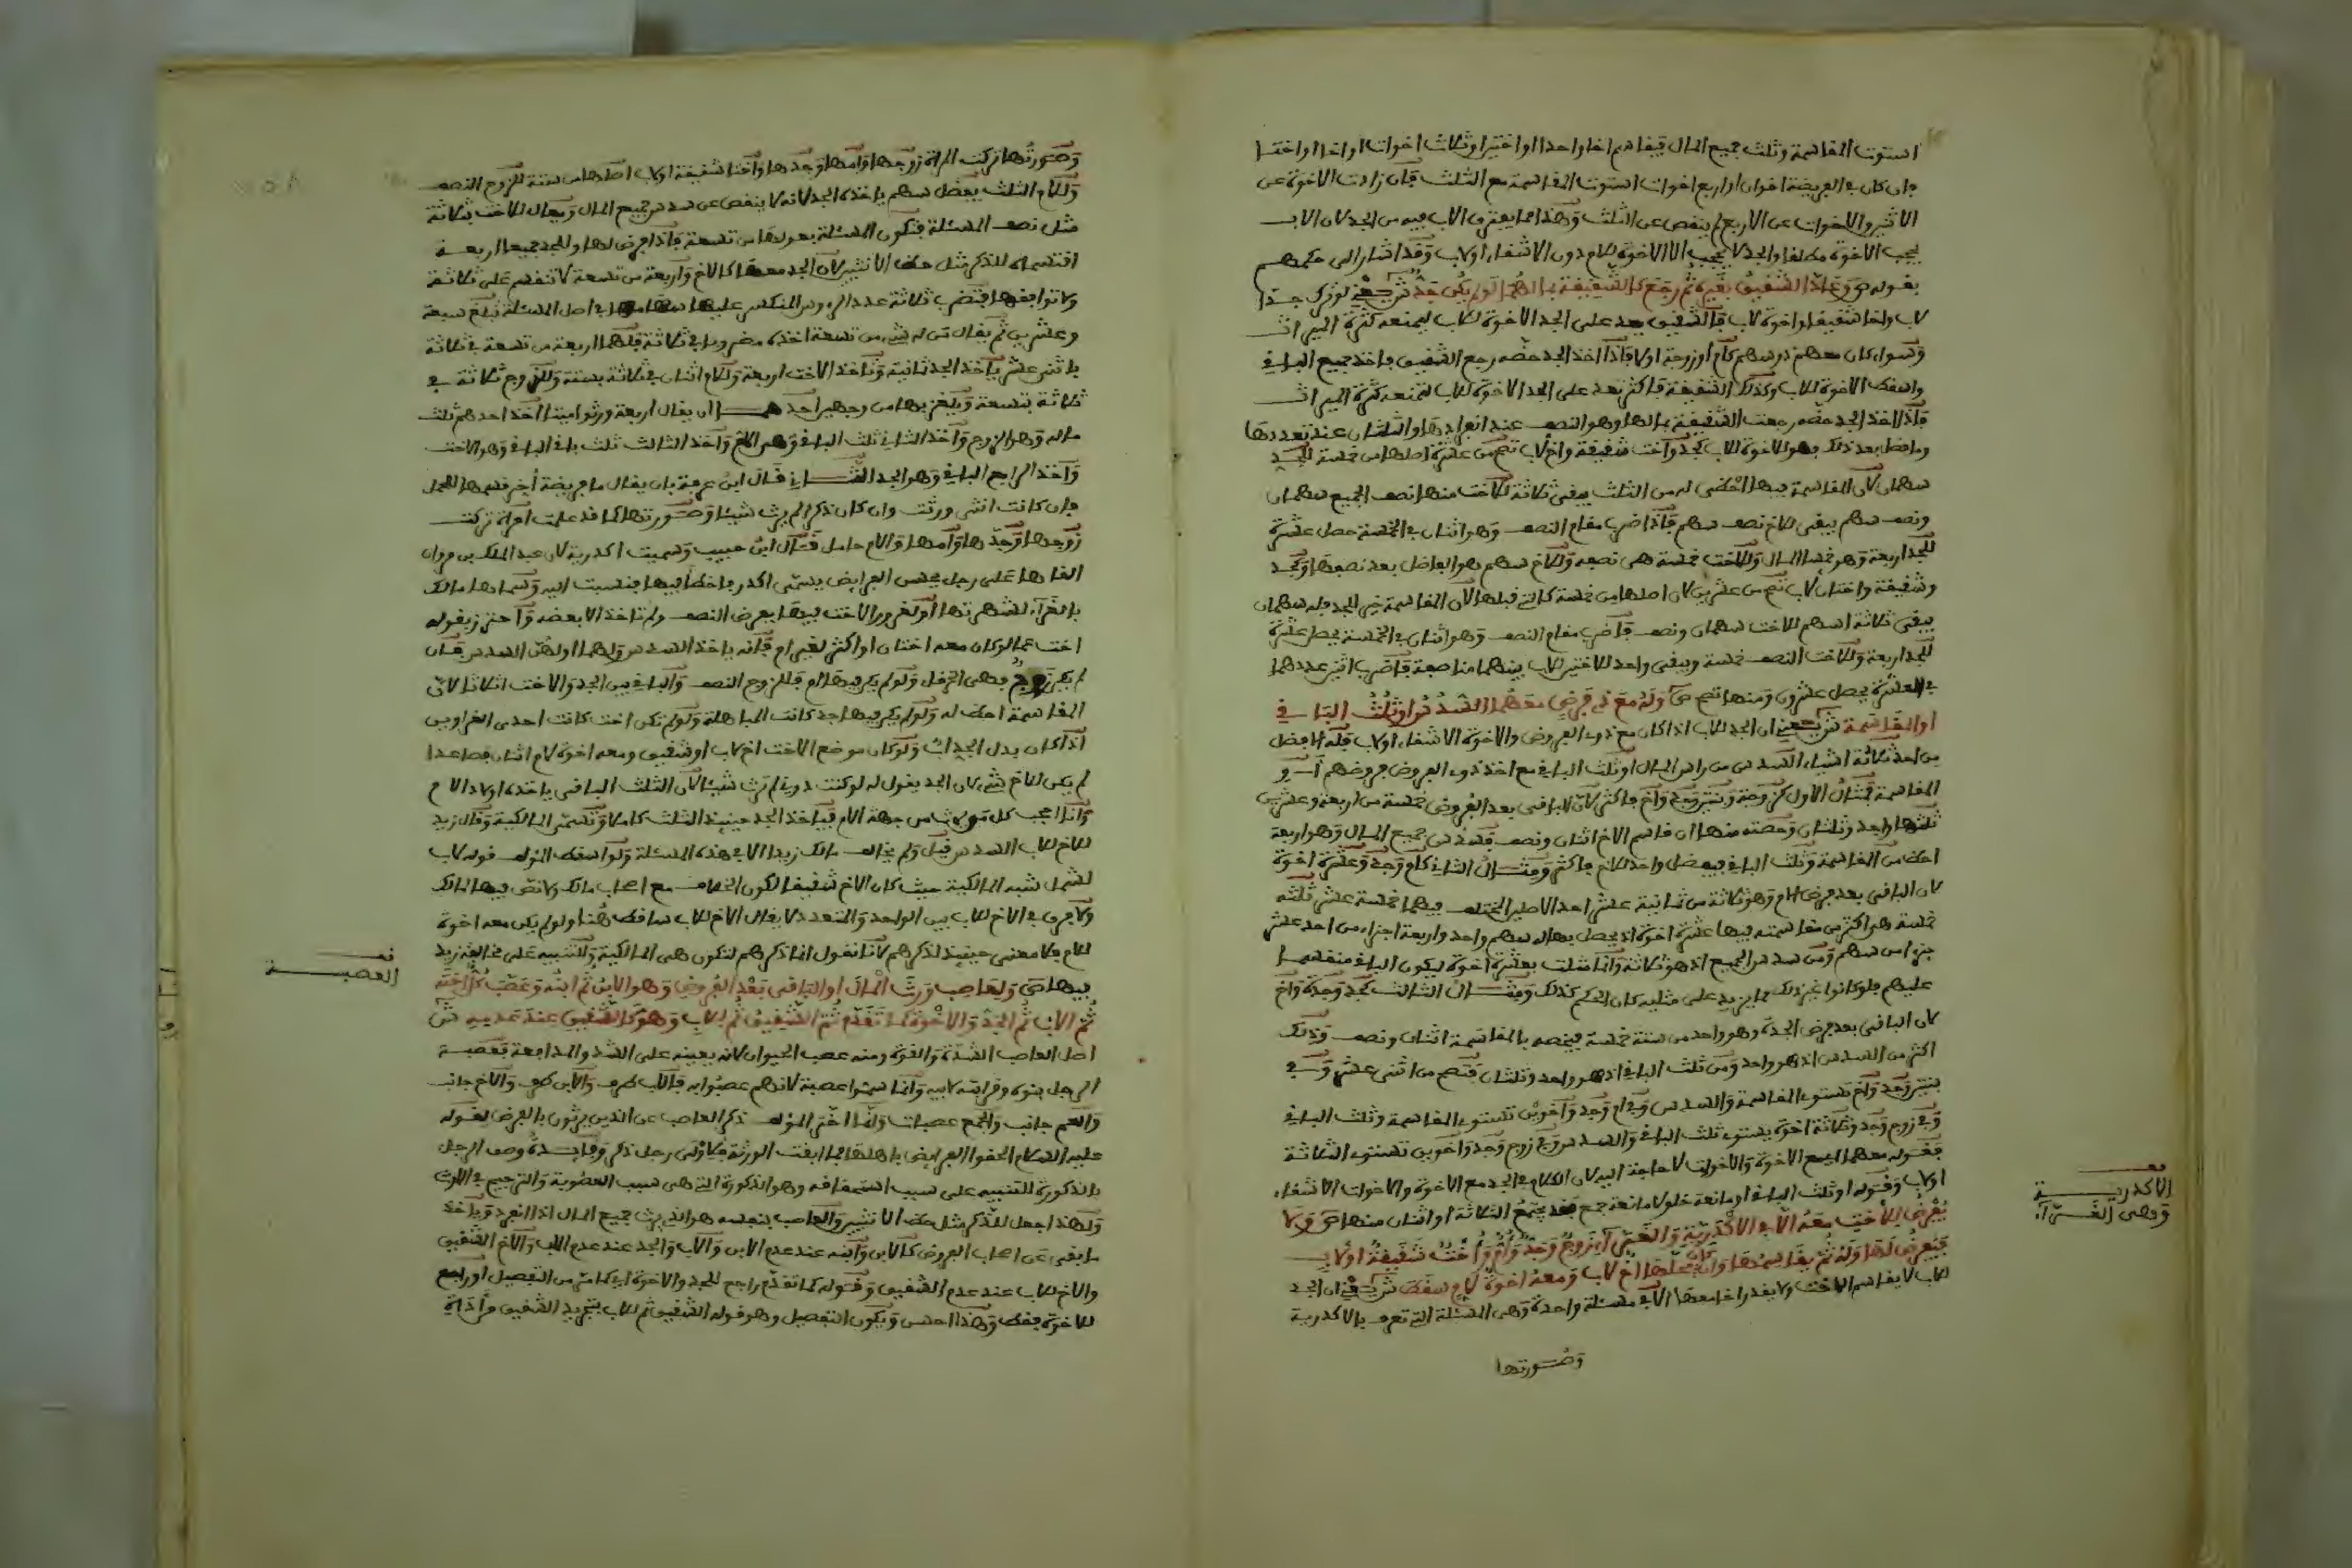 استوت المقاسمة وثلث جميع المال فيقاسم اخا واحدا او اختين او ثلاث اخوات او اخا او اختا
فان كان في الفريضة اخوان او اربع اخوات استوت المقاسمة مع الثلث فان زادت الاخوة عن
الاثنين والاخوات عن الاربع لم ينقص عن الثلث وهذا مما يفترق الاب فيه من الجد لان الاب
يحجب الاخوة مطلقا والجد لا يحجب الا الاخوة للام دون الاشقاء او لاب وقد اشار الى حكمهم
بقوله ص وعاد الشقيق بغيره ثم رجع كالشقيقة بمالها لو لم يكن جد ش يعني لو ترك جدا
لاب واخا شقيقا واخوة لاب فالشقيق يعد على الجد الاخوة للاب ليمنعه كثرة الميراث
وسواء كان معهم ذو سهم كام او زوجة او لا فاذا اخذ الجد حظه رجع الشقيق فاخذ جميع الباقي
واسقط الاخوة للاب وكذلك الشقيقة فاكثر تعد على الجد الاخوة للاب لتمنعه كثرة الميراث
فاذا اخذ الجد حظه رجعت الشقيقة بمالها وهو النصف عند انفرادها والثلثان عند تعددها
وما فضل بعد ذلك فهو للاخوة للاب كجد واخت شقيقة واخ لاب تصح من عشرة اصلها من خمسة للجد
سهمان لان المقاسمة فيها احظى له من الثلث يبقى ثلاثة للاخت منها نصف الجميع سهمان
ونصف سهم يبقى للاخ نصف سهم فاذا ضرب مقام النصف وهو اثنان في الخمسة حصل عشرة
للجد اربعة وهو خمسا المال وللاخت خمسة هي نصفه وللاخ سهم هو الفاضل بعد نصفها وكجد
وشقيقة واختان لاب تصح من عشرين لان اصلها من خمسة كالتي قبلها لان المقاسمة خير للجد فله سهمان
يبقى ثلاثة اسهم للاخت سهمان ونصف فاضرب مقام النصف وهو اثنان في الخمسة يحصل عشرة
للجد اربعة وللاخت النصف خمسة ويبقى واحد للاختين للاب بينهما مناصفة فاضرب اثنين عددهما
في العشرة يحصل عشرون ومنها تصح ص وله مع ذي فرض معهما السدس او ثلث الباقي
او المقاسمة ش يعني ان الجد للاب اذا كان مع ذوي الفروض والاخوة الاشقاء او لاب فله الافضل
من احد ثلاثة اشياء السدس من راس المال او ثلث الباقي مع اخذ ذوي الفروض فروضهم او
المقاسمة فمثال الاول كزوجة وبنتين وجد واخ فاكثر لان الباقي بعد الفروض خمسة من اربعة وعشرين
ثلثها واحد وثلثان وحصته منها ان قاسم الاخ اثنان ونصف فسدس جميع المال وهو اربعة
احظ من المقاسمة وثلث الباقي فيفضل واحد للاخ فاكثر ومثال الثاني كام وجد وعشرة اخوة
لان الباقي بعد فرض الام وهو ثلاثة من ثمانية عشر احد الاصلين المختلف فيهما خمسة عشر ثلثه
خمسة هي اكثر من مقاسمته فيها عشرة اخوة اذ يحصل بها له سهم واحد واربعة اجزاء من احد عشر
جزءا من سهم ومن سدس الجميع اذ هو ثلاثة وانما مثلت بعشرة اخوة ليكون الباقي منقسما
عليهم فلو كانوا غير ذلك مما يزيد على مثليه كان الحكم كذلك ومثال الثالث كجد وجدة واخ
لان الباقي بعد فرض الجدة وهو واحد من ستة خمسة يخصه بالمقاسمة اثنان ونصف وذلك
اكثر من السدس اذ هو واحد ومن ثلث الباقي اذ هو واحد وثلثان فتصح من اثني عشر وفي
بنتين وجد واخ تستوي المقاسمة والسدس وفي ام وجد واخوين تستوي المقاسمة وثلث الباقي
وفي زوج وجد وثلاثة اخوة يستوي ثلث الباقي والسدس وفي زوج وجد واخوين تستوي الثلاثة
فقوله معهما اي مع الاخوة والاخوات لا حاجة اليه لان الكلام في الجد مع الاخوة والاخوات الاشقاء
او لاب وقوله او ثلث الباقي او مانعة خلو لا مانعة جمع فقد يجتمع الثلاثة او اثنان منها ص ولا
يفرض لاخت معه الا في الاكدرية والغراء زوج وجد وام واخت شقيقة او لاب
فيفرض لها وله ثم يقاسمها وان كان محلها اخ لاب ومعه اخوة لام سقط ش يعني ان الجد
للاب لا يقاسم الاخت ولا يقدر اخا معها الا في مسئلة واحدة وهي المسئلة التي تعرف بالاكدرية
وصورتها
قف
الاكدرية
وهي الغراء
وصورتها تركت المراة زوجها وامها وجدها واختا شقيقة او لاب اصلها من ستة للزوج النصف
وللام الثلث يفضل سهم ياخذه الجد لانه لا ينقص عن سدس جميع المال ويعال للاخت بثلاثة
مثل نصف المسئلة فتكون المسئلة بعولها من تسعة فاذا فرض لها وللجد جميعا اربعة
اقتسماه للذكر مثل حظ الانثيين لان الجد معها كالاخ واربعة من تسعة لا تنقسم على ثلاثة
ولا توافقها فتضرب ثلاثة عدد الرءوس المنكسر عليها سهامها في اصل المسئلة تبلغ سبعة
وعشرين ثم يقال من له شيء من تسعة اخذه مضروبا في ثلاثة فلهما اربعة من تسعة في ثلاثة
باثني عشر ياخذ الجد ثمانية وتاخذ الاخت اربعة وللام اثنان في ثلاثة بستة وللزوج ثلاثة في
ثلاثة بتسعة ويلغز بها من وجهين احدهما ان يقال اربعة ورثوا ميتا اخذ احدهم ثلث
ماله وهو الزوج واخذ الثاني ثلث الباقي وهو الام واخذ الثالث ثلث باقي الباقي وهو الاخت
واخذ الرابع الباقي وهو الجد الثاني قال ابن عرفة بان يقال ما فريضة اخر قسمها للحمل
فان كانت انثى ورثت وان كان ذكرا لم يرث شيئا وصورتها كما قد علمت امراة تركت
زوجها وجدها وامها والام حامل قال ابن حبيب وسميت اكدرية لان عبد الملك بن مروان
القاها على رجل يحسن الفرايض يسمى اكدر فاخطا فيها فنسبت اليه وسماها مالك
بالغراء لشهرتها او لغرور الاخت فيها بفرض النصف ولم تاخذ الا بعضه واحترز بقوله
اخت عما لو كان معه اختان او اكثر لغير ام فانه ياخذ السدس ولهما او لهن السدس فان
لم يكن زوج فهي الخرقا ولو لم يكن فيها ام فللزوج النصف والباقي بين الجد والاخت اثلاثا لان
المقاسمة احظ له ولو لم يكن فيها جد كانت المباهلة ولو لم تكن اخت كانت احدى الغراوين
اذا كان بدل الجد اب ولو كان موضع الاخت اخ لاب او شقيق ومعه اخوة لام اثنان فصاعدا
لم يكن للاخ شيء لان الجد يقول له لو كنت دوني لم ترث شيئا لان الثلث الباقي ياخذه اولاد الام
وانا احجب كل من يرث من جهة الام فياخذ الجد حينئذ الثلث كاملا وتسمى المالكية وقال زيد
للاخ للاب السدس قيل ولم يخالف مالك زيدا الا في هذه المسئلة ولو اسقط المؤلف قوله لاب
لشمل شبه المالكية حيث كان الاخ شقيقا لكون الخلاف مع اصحاب مالك ولا نص فيها لمالك
ولا فرق في الاخ للاب بين الواحد والمتعدد لا يقال الاخ للاب ساقط هنا ولو لم يكن معه اخوة
لام فلا معنى حينئذ لذكرهم لانا نقول انما ذكرهم لتكون هي المالكية وللتنبيه على مخالفة زيد
فيها ص ولعاصب ورث المال او الباقي بعد الفروض وهو الابن ثم ابنه وعصب كل اخته
ثم الاب ثم الجد والاخوة كما تقدم ثم الشقيق ثم للاب وهو كالشقيق عند عدمه ش
اصل العاصب الشدة والقوة ومنه عصب الحيوان لانه يعينه على الشد والمدافعة فعصبة
الرجل بنوه وقرابته لابيه وانما سموا عصبة لانهم عصبوا به فالاب طرف والابن طرف والاخ جانب
والعم جانب والجمع عصبات وانما اخر المؤلف ذكر العاصب عن الذين يرثون بالفرض لقوله
عليه السلام الحقوا الفرايض باهلها فما ابقت الورثة فلاولى رجل ذكر وفايدة وصف الرجل
بالذكورة للتنبيه على سبب استحقاقه وهو الذكورة التي هي سبب العصوبة والترجيح في الارث
ولهذا جعل للذكر مثل حظ الانثيين والعاصب بنفسه هو الذي يرث جميع المال اذا انفرد وياخذ
ما بقي عن اصحاب الفروض كالابن وابنه عند عدم الابن والاب والجد عند عدم الاب والاخ الشقيق
والاخ للاب عند عدم الشقيق وقوله كما تقدم راجع للجد والاخوة اي كما مر من التفصيل او راجع
للاخوة فقط وهذا احسن ويكون التفصيل وهو قوله الشقيق ثم للاب بتجريد الشقيق
قف
العصبة